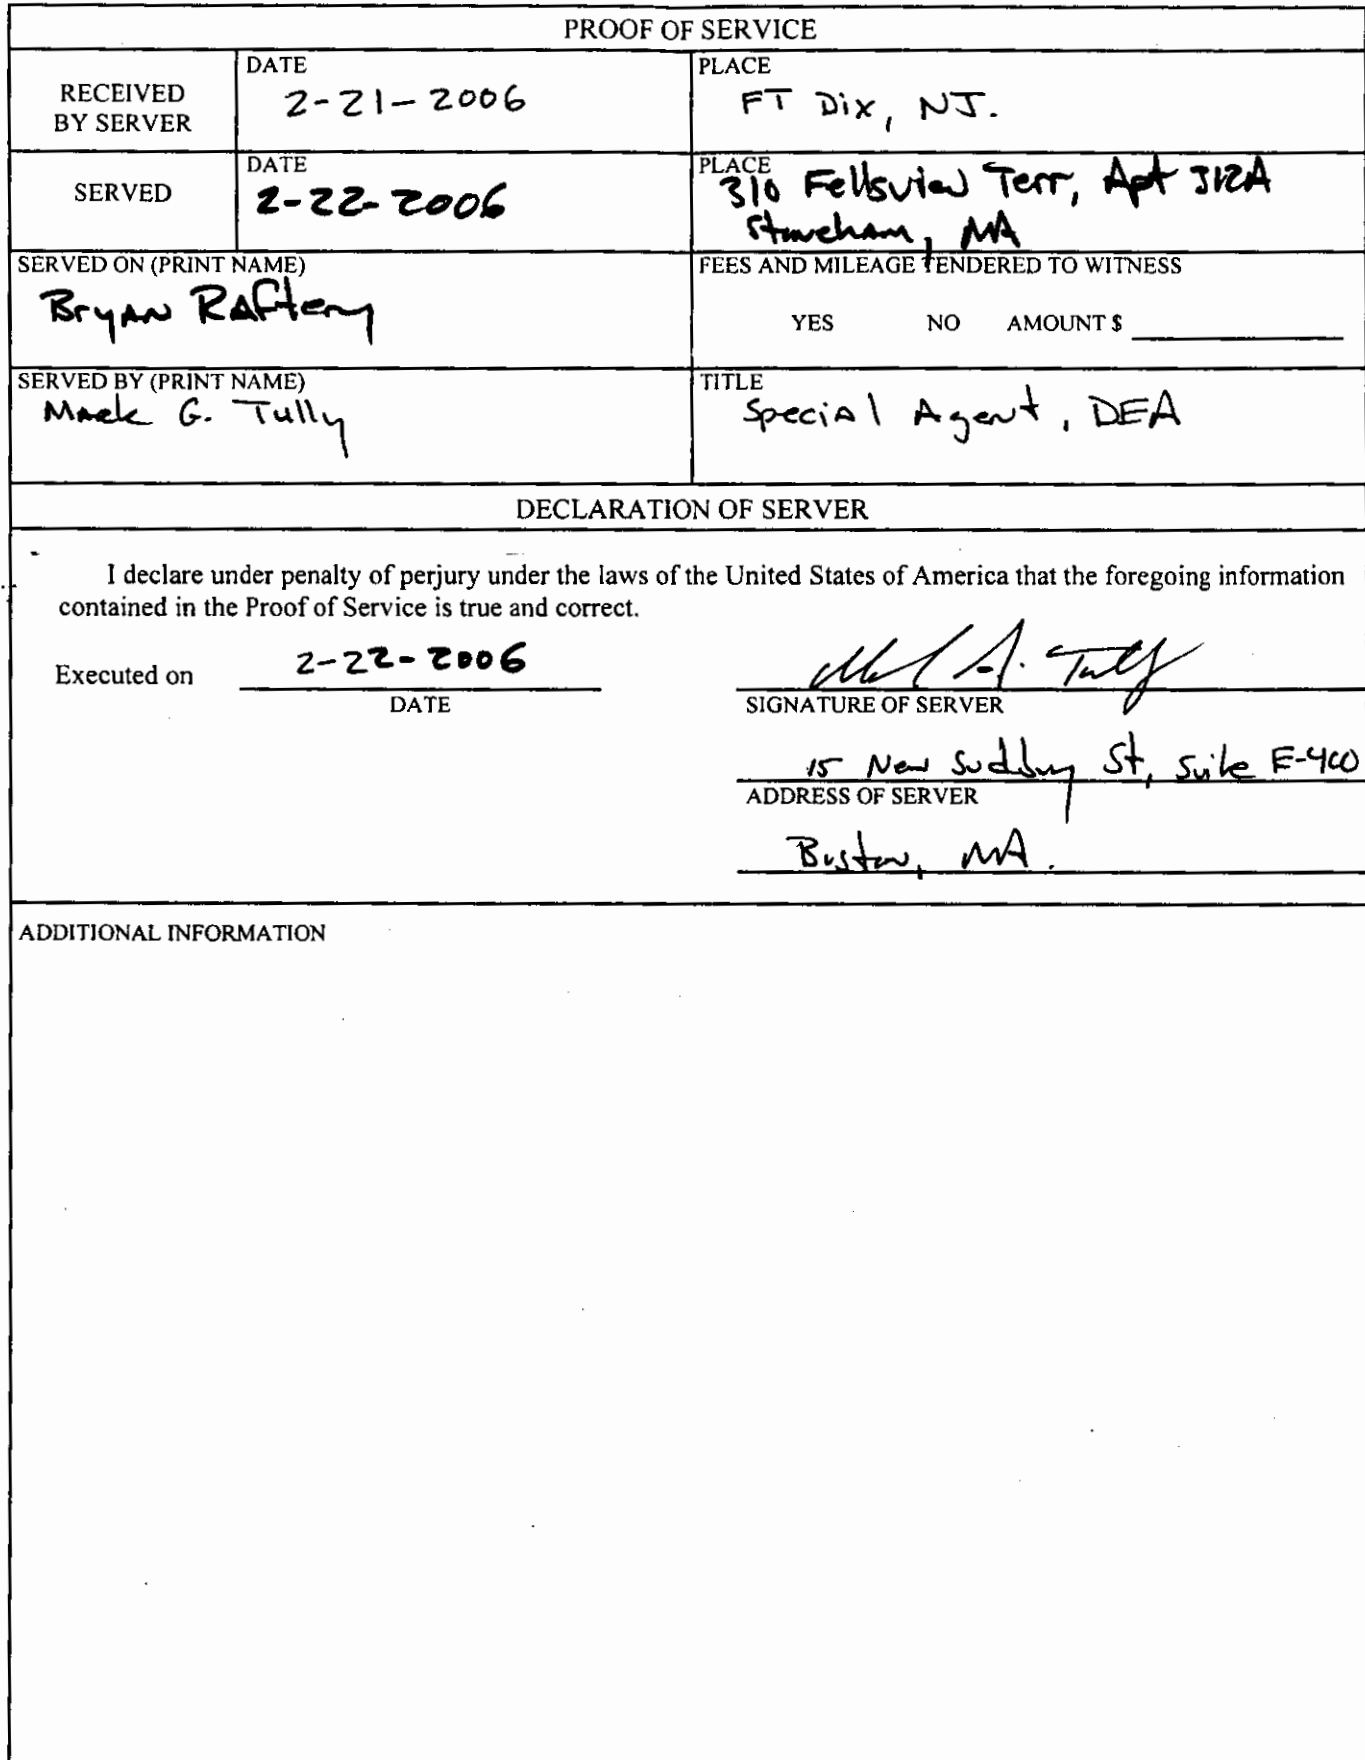 PROOF OF SERVICE
RECEIVED
BY SERVER
DATE
2-21-2006
PLACE
FT Dix, NJ.
SERVED
DATE
2-22-2006
PLACE
310 Fellsview Terr, Apt
Stoneham, MA
SERVED ON (PRINT NAME)
Bryan Raftery
FEES AND MILEAGE TENDERED TO WITNESS
YES NO AMOUNT $
SERVED BY (PRINT NAME)
Mark G. Tully
TITLE
Special Agent, DEA
DECLARATION OF SERVER
I declare under penalty of perjury under the laws of the United States of America that the foregoing information
contained in the Proof of Service is true and correct.
Executed on 2-22-2006
DATE
Mark G. Tully
SIGNATURE OF SERVER
15 New Sudbury St, Suite E-400
ADDRESS OF SERVER
Boston, MA.
ADDITIONAL INFORMATION